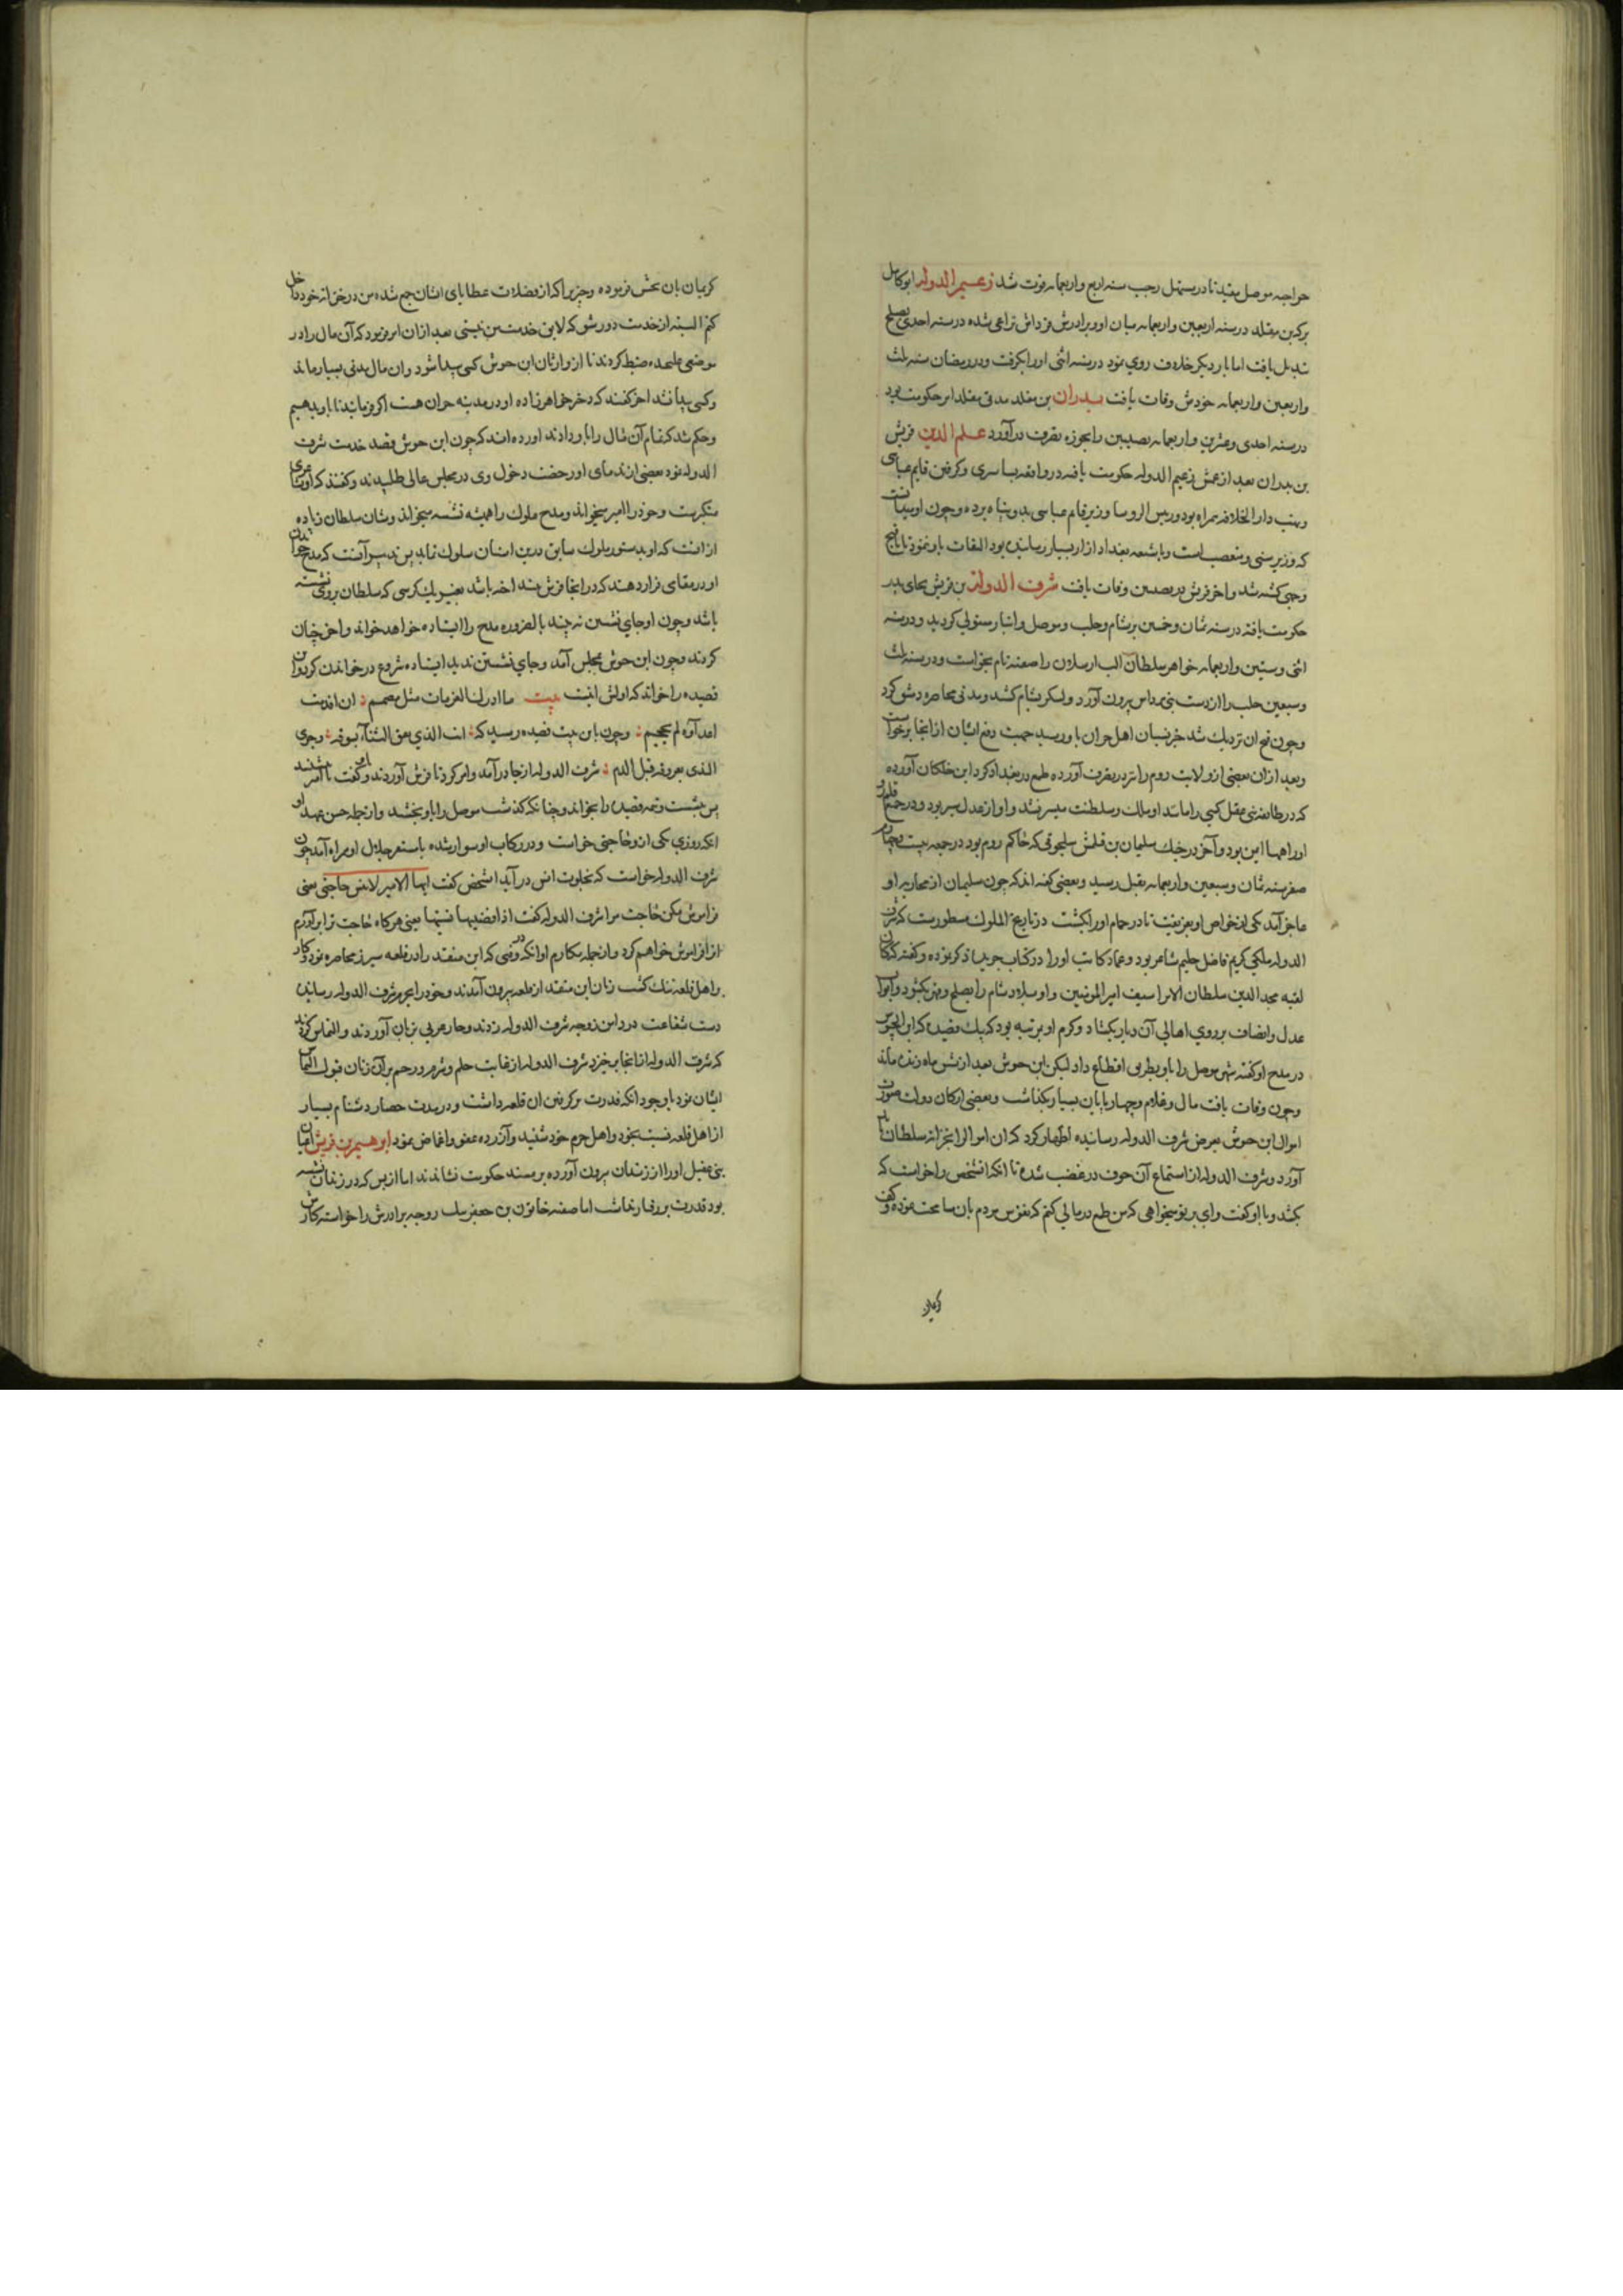 خواجه موصل مقید تا در مستهل رجب سنه اربع و اربعمایه فوت شد زعیم الدوله ابو کامل
برکه بن مقلد در سنه اربعین و اربعمایه میان او و برادرش قرداش نزاعی شده در سنه احدی بصلح
تبدیل یافت اما بار دیکر خلاف روی نمود در سنه اثنی او را بکرفت و در رمضان سنه ثلث
و اربعین و اربعمایه خودش وفات یافت بدران بن مقلد مدتی مقلد امر حکومت بود
در سنه احدی و عشرین و اربعمایه نصیبین را بحوزه تصرف در آورد علم الدین قریش
بن بدران بعد از عمش زعیم الدوله حکومت یافته در واقعه بساسیری و کرفتن قایم عباسی
و نهب دار الخلافه همراه بود و رییس الروسا وزیر قایم عباسی بدو پناه برده و چون او میدانست
که وزیر سنی و متعصب است و با شیعه بغداد ازار بسیار رسانیده بود التفات باو ننمود تا باقبح
وجهی کشته شد و اخر قریش در نصیبین وفات یافت شرف الدوله بن قریش بجای پدر
حکومت یافته در سنه ثمان و خمسین بر شام و حلب و موصل و انبار مستولی کردید و در سنه
اثنی و ستین و اربعمایه خواهر سلطان الب ارسلان را صفیه نام بخواست و در سنه ثلث
و سبعین حلب را از دست بنی مرداس بیرون آورد و لشکر بشام کشید و مدتی محاصره دمشق کرد
و چون فتح ان نزدیک شد خبر عصیان اهل حران باو رسید جهت دفع ایشان از انجا برخواست
و بعد ازان بعضی از ولایت روم را نیز در تصرف آورده طمع در بغداد کرد ابن خلکان آورده
که در طایفه بنی عقیل کسی را مانند او ملک و سلطنت میسر نشد و او از عدل سیر بود و در جمیع قلمرو
او راهها ایمن بود و آخر در جنک سلیمان بن قتلمش سلجوقی که حاکم روم بود در جمعه بیست و چهارم
صفر سنه ثمان و سبعین و اربعمایه بقتل رسید و بعضی کفته اند که چون سلیمان از محاربه او
عاجز آمد یکی از خواص او بفریفت تا در حمام او را بکشت در تاریخ الملوک مسطورست که شرف
الدوله ملکی کریم فاضل حلیم شاعر بود و عماد کاتب او را در کتاب جریده ذکر نموده و کفته که کان
لقبه مجد الدین سلطان الامرا سیف امیر المومنین و او بلاد شام را بصلح و قهر بکشود و ابواب
عدل و انصاف بر روی اهالی آن دیار بکشاد و کرم او بمرتبه بود که بیک قصیده که ابن حیوش
در مدح او کفته شهر موصل را باو بطریق اقطاع داد لیکن ابن حیوش بعد از شش ماه زنده ماند
و چون وفات یافت مال و غلام و چهارپایان بسیار بکذاشت و بعضی ارکان دولت صورت
اموال ابن حیوش بعرض شرف الدوله رسانیده اظهار کرد که ان اموال را بخزانه سلطان باید
آورد و شرف الدوله از استماع آن حرف در غضب شده تا انکه انشخص را خواست که
بکشد و با او کفت وای بر تو میخواهی که من طمع در مالی کنم که نفوس مردم بان سماحت نموده و کف
کریمان
کریمان بان بخشش فرموده و چیزی را که از فضلات عطایای ایشان جمع شده من در خزانه خود داخل
کنم البته از خدمت دور شو که لایق خدمت من نیستی بعد ازان امر فرمود که آن مال را در
موضعی علیحده ضبط کردند تا از وارثان ابن حیوش کسی پیدا شود و ان مال مدتی بسیار ماند
و کسی پیدا نشد اخر کفتند که دختر خواهرزاده او در مدینه حران هست اکر فرمایید تا باو بدهیم
و حکم شد که تمام آن مال را باو دادند آورده اند که چون ابن حیوش قصد خدمت شرف
الدوله نمود بعضی از ندمای او رخصت دخول وی در مجلس عالی طلبیدند و کفتند که او شاعری
متکبرست و خود را امیر میخواند و مدح ملوک را همیشه نشسته میخواند و شان سلطان زیاده
از انست که او بدستور ملوک سابق درین استان سلوک نماید پس تدبیر آنست که مدح خواندن
او در مقامی قرار دهند که در انجا فرش نینداخته باشد بغیر یک کرسی که سلطان بر روی نشسته
باشد و چون او جای نشستن نه بیند بالضروره مدح را ایستاده خواهد خواند و اخر چنان
کردند و چون ابن حیوش بمجلس آمد و جای نشستن ندید ایستاده شروع در خواندن کرد و ان
قصیده را خواند که اولش اینست بیت ما ادرک الغزمات مثل مصمم ان اقدمت
اعداؤه لم یحجم و چون باین بیت قصیده رسید که انت الذی نفق الثناء بسوقه و جری
الندی بعروقه قبل الدم شرف الدوله از جا درآمد و امر کرد تا فرش آوردند و کفت یا امیر بنشیند
پس بنشست و تمه قصیده را بخواند و چنانکه کذشت موصل را باو بخشید و از جمله حسن عهد او
انکه روزی یکی ازو حاجتی خواست و در رکاب او سوار شده باستقر جلال او همراه آمد چون
شرف الدوله خواست که بخلوت انس در آید انشخص کفت ایها الامیر لا تنس حاجتی یعنی
فراموش مکن حاجت مرا شرف الدوله کفت اذا قضیتها نسیتها یعنی هر کاه حاجت ترا برآورم
انرا فراموش خواهم کرد و از جمله مکارم او انکه در وقتی که ابن منقذ را در قلعه شیزر محاصره نمود و کار
بر اهل قلعه تنک کشت زنان ابن منقذ از قلعه بیرون آمدند و خود را بحرم شرف الدوله رسانیده
دست شفاعت در دامن زوجه شرف الدوله زدند و جار عربی بزبان آوردند و التماس کردند
که شرف الدوله از انجا برخیزد شرف الدوله از غایت حلم و شرم و رحم بر آن زنان قبول التماس
ایشان نمود با وجود انکه قدرت بر کرفتن ان قلعه داشت و در مدت حصار دشنام بسیار
از اهل قلعه نسبت بخود و اهل حرم خود شنید و آزرده عفو و اغماض نمود ابرهیم بن قریش اعیان
بنی عقیل او را از زندان بیرون آورده بر مسند حکومت نشاندند اما از بس که در زندان نشسته
بود قدرت بر رفتار نداشت اما صفیه خاتون بن جعفر بیک زوجه برادرش را خواسته کارش